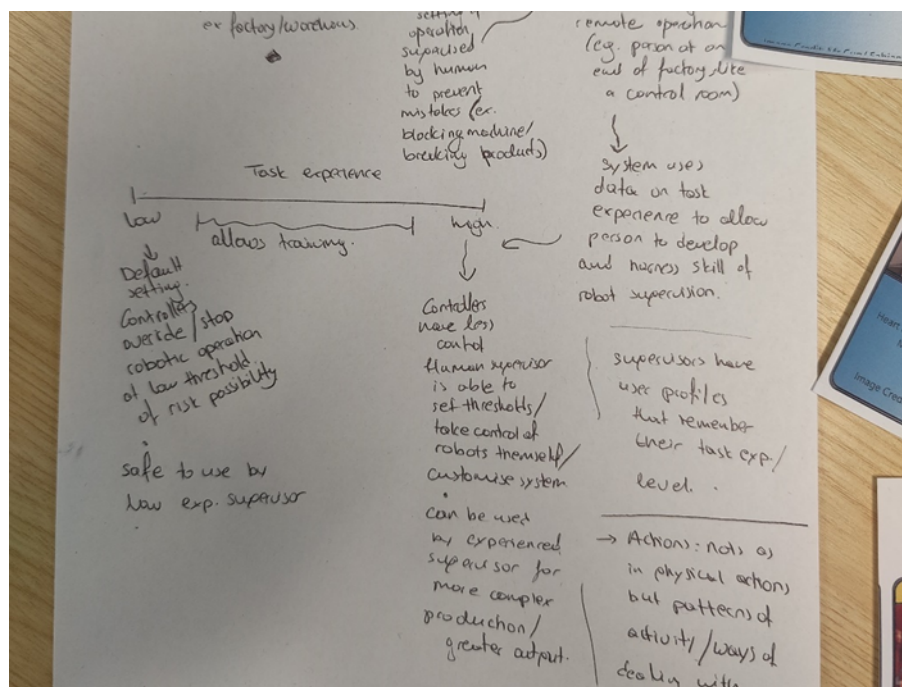 ex factory/warehouse.
setting
operation
supervised
by human
to prevent
mistakes (ex.
blocking machine/
breaking products)
remote operation
(eg. person at one
end of factory, like
a control room)
system uses
data on task
experience to allow
person to develop
and harness skill of
robot supervision.
Task experience
low
high.
allows training.
Default
setting.
Controllers
override/stop
robotic operation
at low threshold
of risk possibility
safe to use by
low exp. supervisor
Controllers
have less
control
Human supervisor
is able to
set thresholds/
take control of
robots themself/
customise system
can be used
by experienced
supervisor for
more complex
production/
greater output.
supervisors have
user profiles
that remember
their task exp./
level.
→ Actions: not as
in physical actions
but patterns of
activity/ways of
dealing with
Heart
Image Cred